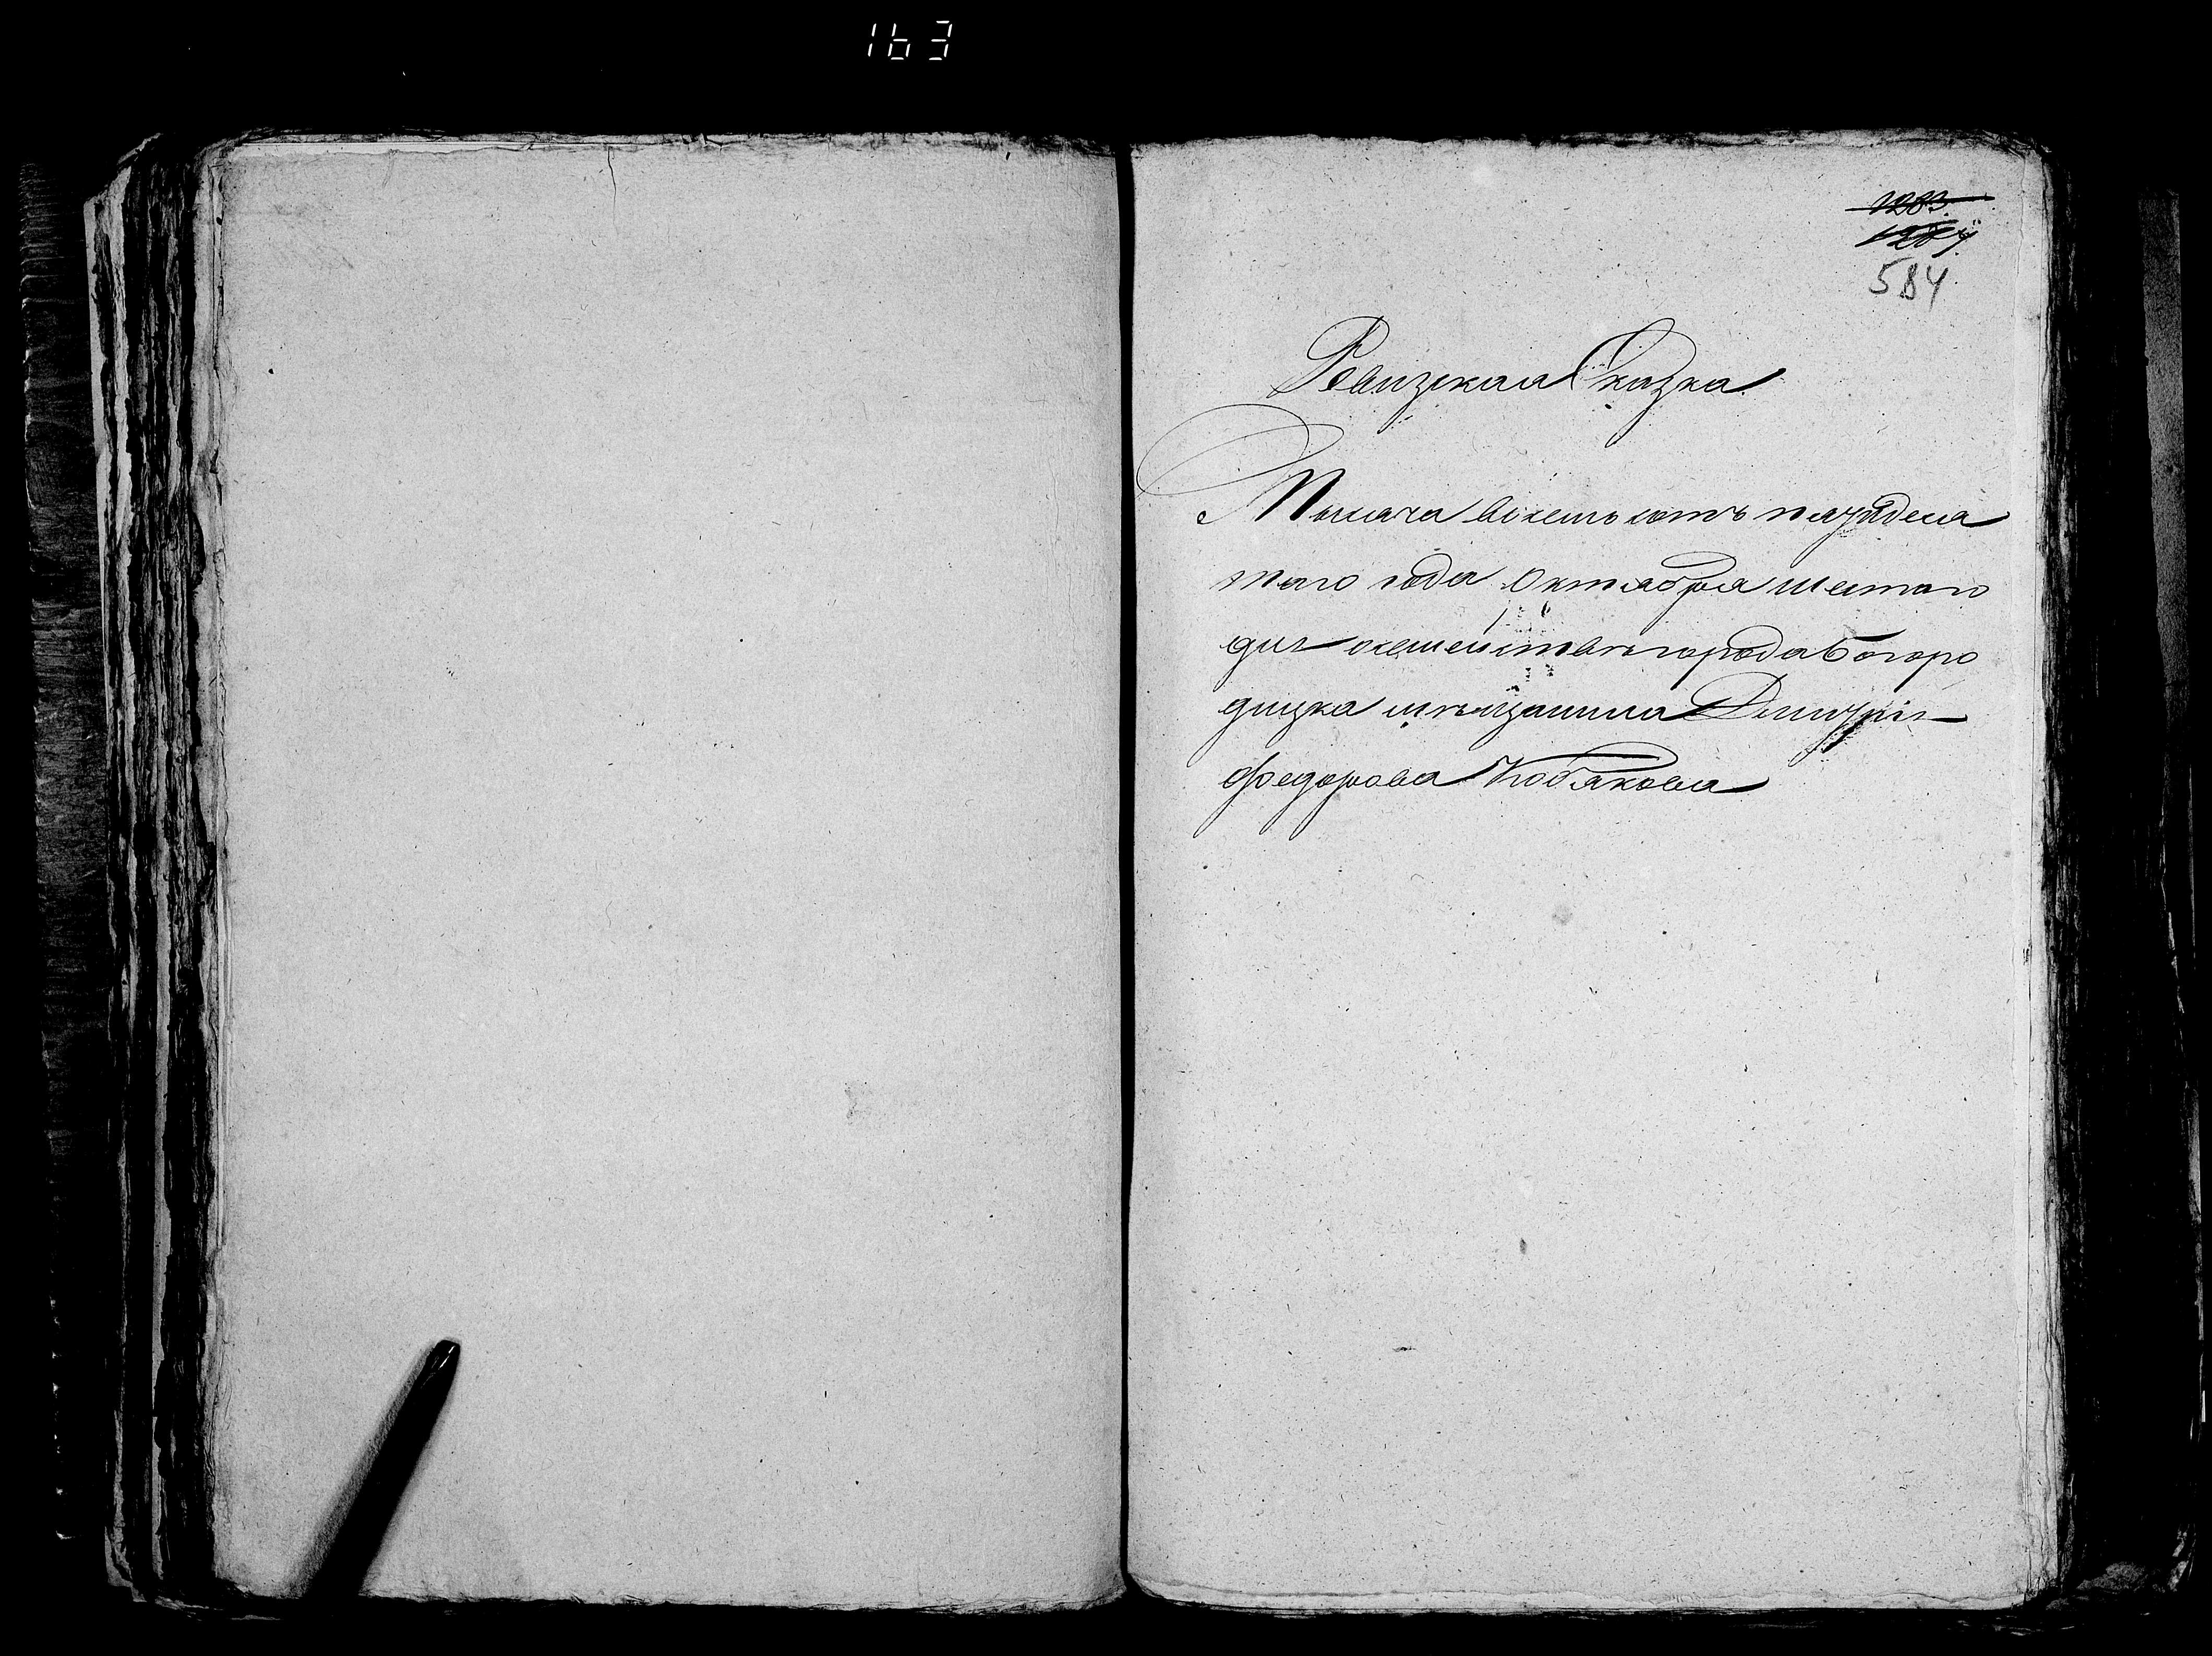 163
1283
584
Ревизская Сказка
Тысяча восемь сотъ пятьдеся
таго года Октября шестаго
дня семействе города Богоро
дицка мѣщанина Дмитрія
Федорова Кобякова